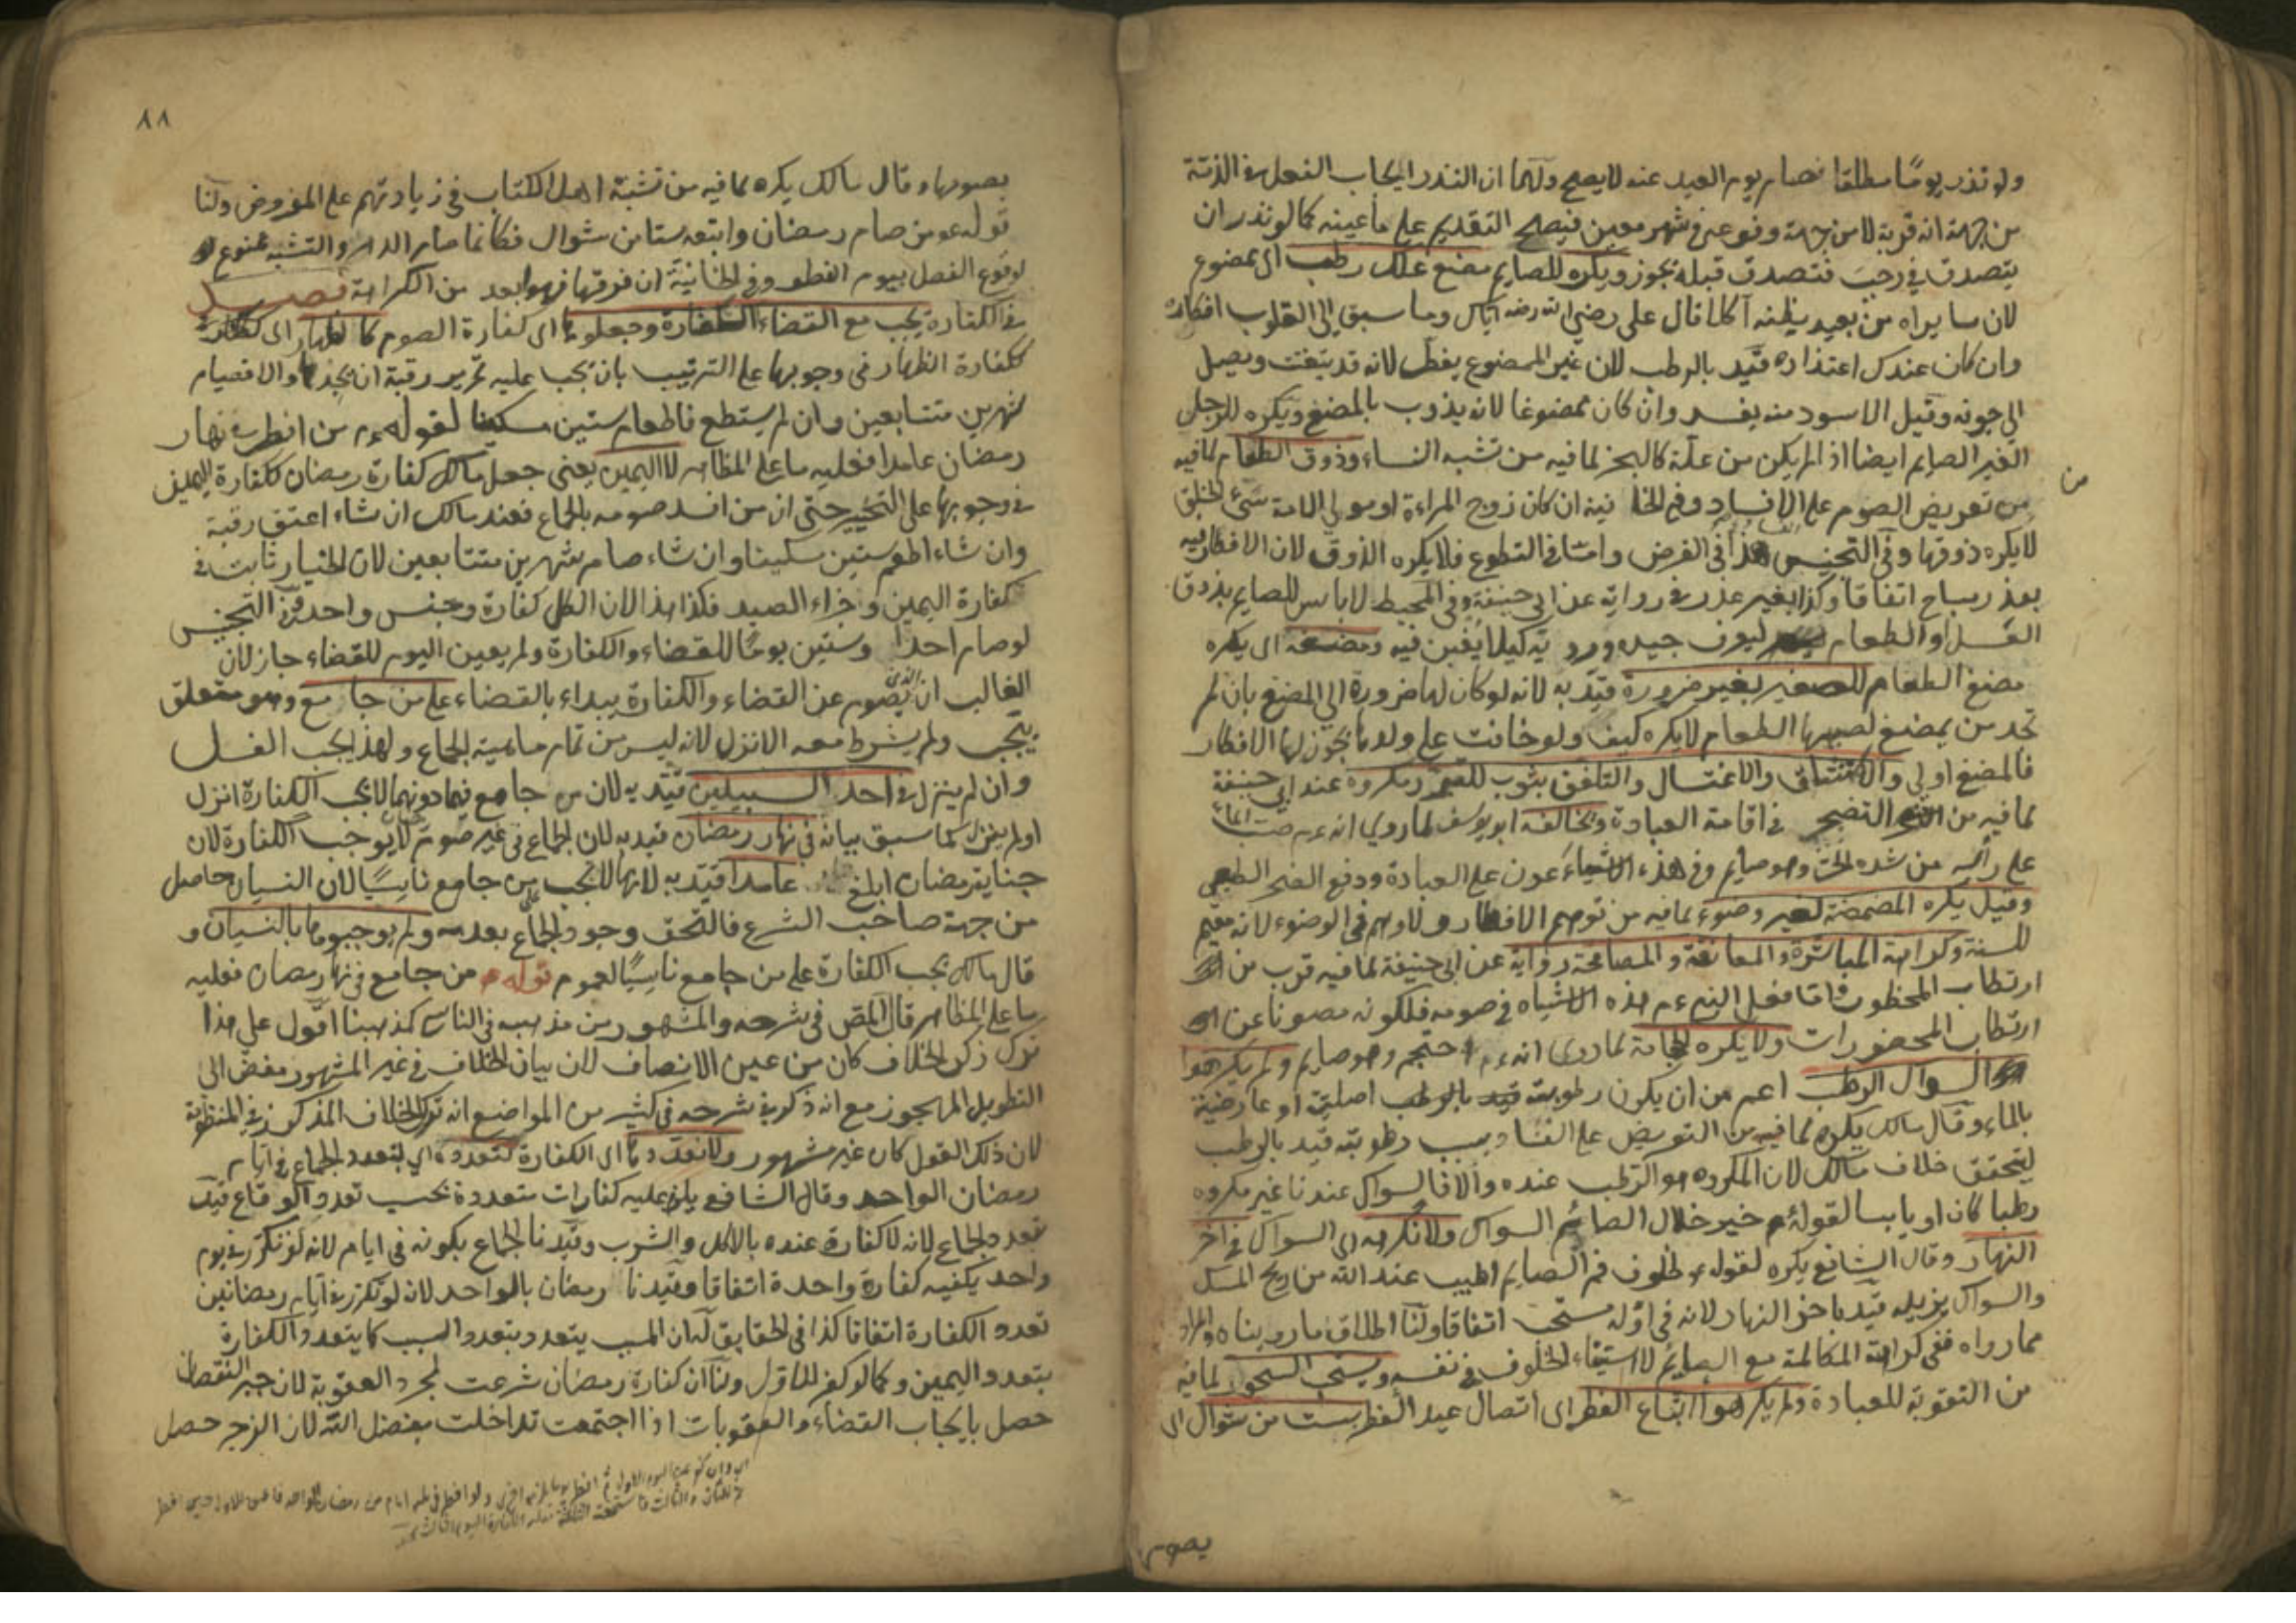 ولو نذر يومًا مطلقا فصام يوم العيد عنه لا يصح ولهما ان النذر ايجاب الفعل في الذمة
من جهة انه قربة لا من جهة وقوعه في شهر معين فيصح التقديم على ما عينه كما لو نذر ان
يتصدق في رجب فتصدق قبله يجوز ويكره للصايم مضغ علك رطب اى ممضوغ
لان من يراه من بعيد يظنه آكلا قال على رضي الله عنه اياك وما يسبق الى القلوب انكاره
وان كان عندك اعتذاره قيد بالرطب لان غير الممضوغ يفطر لانه قد يتفتت ويصل
الى جوفه وقيل الاسود منه يفسد وان كان ممضوغا لانه يذوب بالمضغ ويكره للرجل
الغير الصايم ايضا اذا لم يكن من علة كالبخر لما فيه من تشبه النساء وذوق الطعام لما فيه
من
من تعريض الصوم على الافساد وفي الخا نية ان كان زوج المراءة او مولى الامة سئ الخلق
لا يكره ذوقها وفي التجنيس هذا في الفرض واما في التطوع فلا يكره الذوق لان الافطار فيه
بعذر يباح اتفاقا وكذا بغير عذر في رواية عن ابي حنيفة وفي المحيط لا باس للصايم بذوق
العسل او الطعام ليعرف جيده ورد يه كيلا يغبن فيه ومضغه اى يكره
مضغ الطعام للصغير بغير ضرورة قيد به لانه لو كان لها ضرورة الى المضغ بان لم
تجد من يمضغ لصبيها الطعام لا يكره كيف ولو خافت على ولدها يجوز لها الافطار
فالمضغ اولى والاستنشاق والاغتسال والتلفف بثوب للتبرد مكروه عند ابي حنيفة
لما فيه من التضجر في اقامة العبادة وخالفه ابو يوسف لما روي انه عم صب الماء
على رأسه من شدة الحر وهو صايم وفي هذه الاشياء عون على العبادة ودفع الضجر الطبعي
وقيل يكره المضمضة لغير وضوء لما فيه من توهم الافطار ولا وهم في الوضوء لانه مقيم
للسنة وكراهة المباشرة والمعانقة والمصافحة رواية عن ابي حنيفة لما فيه قرب من
ارتطاب المحظور واما فعل النبي عم هذه الاشياء في صومه فلكونه مصونا عن
ارتطاب المحضورات ولا يكره الحجامة لما روى انه عم احتجم وهو صايم ولم يكرهوا
السواك الرطب اعم من ان يكون رطوبته بالرطب اصلية او عارضية
بالماء وقال مالك يكره لما فيه من التعريض على الفساد بسبب رطوبته قيد بالرطب
ليتحقق خلاف مالك لان المكروه هو الرطب عنده والا فالسواك عندنا غير مكروه
رطبا كان او يابسا لقوله عم خير خلال الصائم السواك ولا نكرهه اى السواك في آخر
النهار وقال الشافع يكره لقوله عم خلوف فم الصايم اطيب عند الله من ريح المسك
والسواك يزيله قيد باخر النهار لانه في اوله مستحب اتفاقا ولنا اطلاق ما رويناه والمراد
مما رواه نفي كراهة المكالمة مع الصائم لا استبقاء الخلوف في نفسه ويستحب السحور لما فيه
من التقوية للعبادة ولم يكرهوا اتباع الفطر اى اتصال عيد الفطر بست من شوال اى
يصوم

٨٨
بصومها وقال مالك يكره لما فيه من تشبه اهل الكتاب في زيادتهم على المفروض ولنا
قوله عم من صام رمضان واتبعه ستا من شوال فكانما صام الدهر والتشبه ممنوع
لوقوع الفصل بيوم الفطر وفي الخانية ان فرقها فهو ابعد من الكراهة فصل
في الكفارة يجب مع القضاء الكفارة وجعلوها اى كفارة الصوم كالظهار اى
ككفارة الظهار في وجوبها على الترتيب بان يجب عليه تحرير رقبة ان يجدها والا فصيام
شهرين متتابعين وان لم يستطع فاطعام ستين مسكينا لقوله عم من افطر في نهار
رمضان عامدا فعليه ما على المظاهر لا اليمين يعنى جعل مالك كفارة رمضان ككفارة اليمين
في وجوبها على التخيير حتى ان من افسد صومه بالجماع فعند مالك ان شاء اعتق رقبة
وان شاء اطعم ستين مسكينا وان شاء صام شهرين متتابعين لان الخيار ثابت في
كفارة اليمين وجزاء الصيد فكذا هذا لان الكل كفارة وجنس واحد وفي التجنيس
لو صام احدا وستين يوما للقضاء والكفارة ولم يعين اليوم للقضاء جاز لان
الغالب ان الذى يصوم عن القضاء والكفارة يبداء بالقضاء على من جامع وهو متعلق
بيجب ولم يشرط معه الانزل لانه ليس من تمام ماهية الجماع ولهذا يجب الغسل
وان لم ينزل في احد السبيلين قيد به لان من جامع فيما دونهما لا يجب الكفارة انزل
اولم ينزل كما سبق بيانه في نهار رمضان قيد به لان الجماع في غير صوم لا يوجب الكفارة لان
جناية رمضان ابلغ عامدا قيد به لانها لا تجب من جامع ناسيًا لان النسيان حاصل
من جهة صاحب الشرع فالتحق وجود الجماع بعدمه ولم يوجبوها بالنسيان و
قال مالك يجب الكفارة على من جامع ناسيًا لعموم قوله عم من جامع في نهار رمضان فعليه
ما على المظاهر قال المص في شرحه والمشهور من مذهبه في الناسى كمذهبنا اقول على هذا
ترك ذكر الخلاف كان من عين الانصاف لان بيان الخلاف في غير المشهور مفض الى
التطويل المهجور مع انه ذكر في شرحه في كثير من المواضع انه ترك الخلاف المذكور في المنظومة
لان ذلك القول كان غير مشهور ولا نعددها اى الكفارة لتعدده اى لتعدد الجماع في ايام
رمضان الواحد وقال الشافع يلزم عليه كفارات متعددة بحسب تعدد الوقاع قيد
بتعدد الجماع لانه لا كفارة عنده بالاكل والشرب وقيدنا الجماع بكونه في ايام لانه لو تكرر في يوم
واحد يكفيه كفارة واحدة اتفاقا وقيدنا رمضان بالواحد لانه لو تكرر في ايام رمضانين
تعدد الكفارة اتفاقا كذا في الحقايق له ان المسبب يتعدد بتعدد السبب كما يتعدد الكفارة
بتعدد اليمين وكما لو كفر للاول ولنا ان كفارة رمضان شرعت لمجرد العقوبة لان جبر النقصان
حصل بايجاب القضاء والعقوبات اذا اجتمعت تداخلت بفضل الله لان الزجر حصل